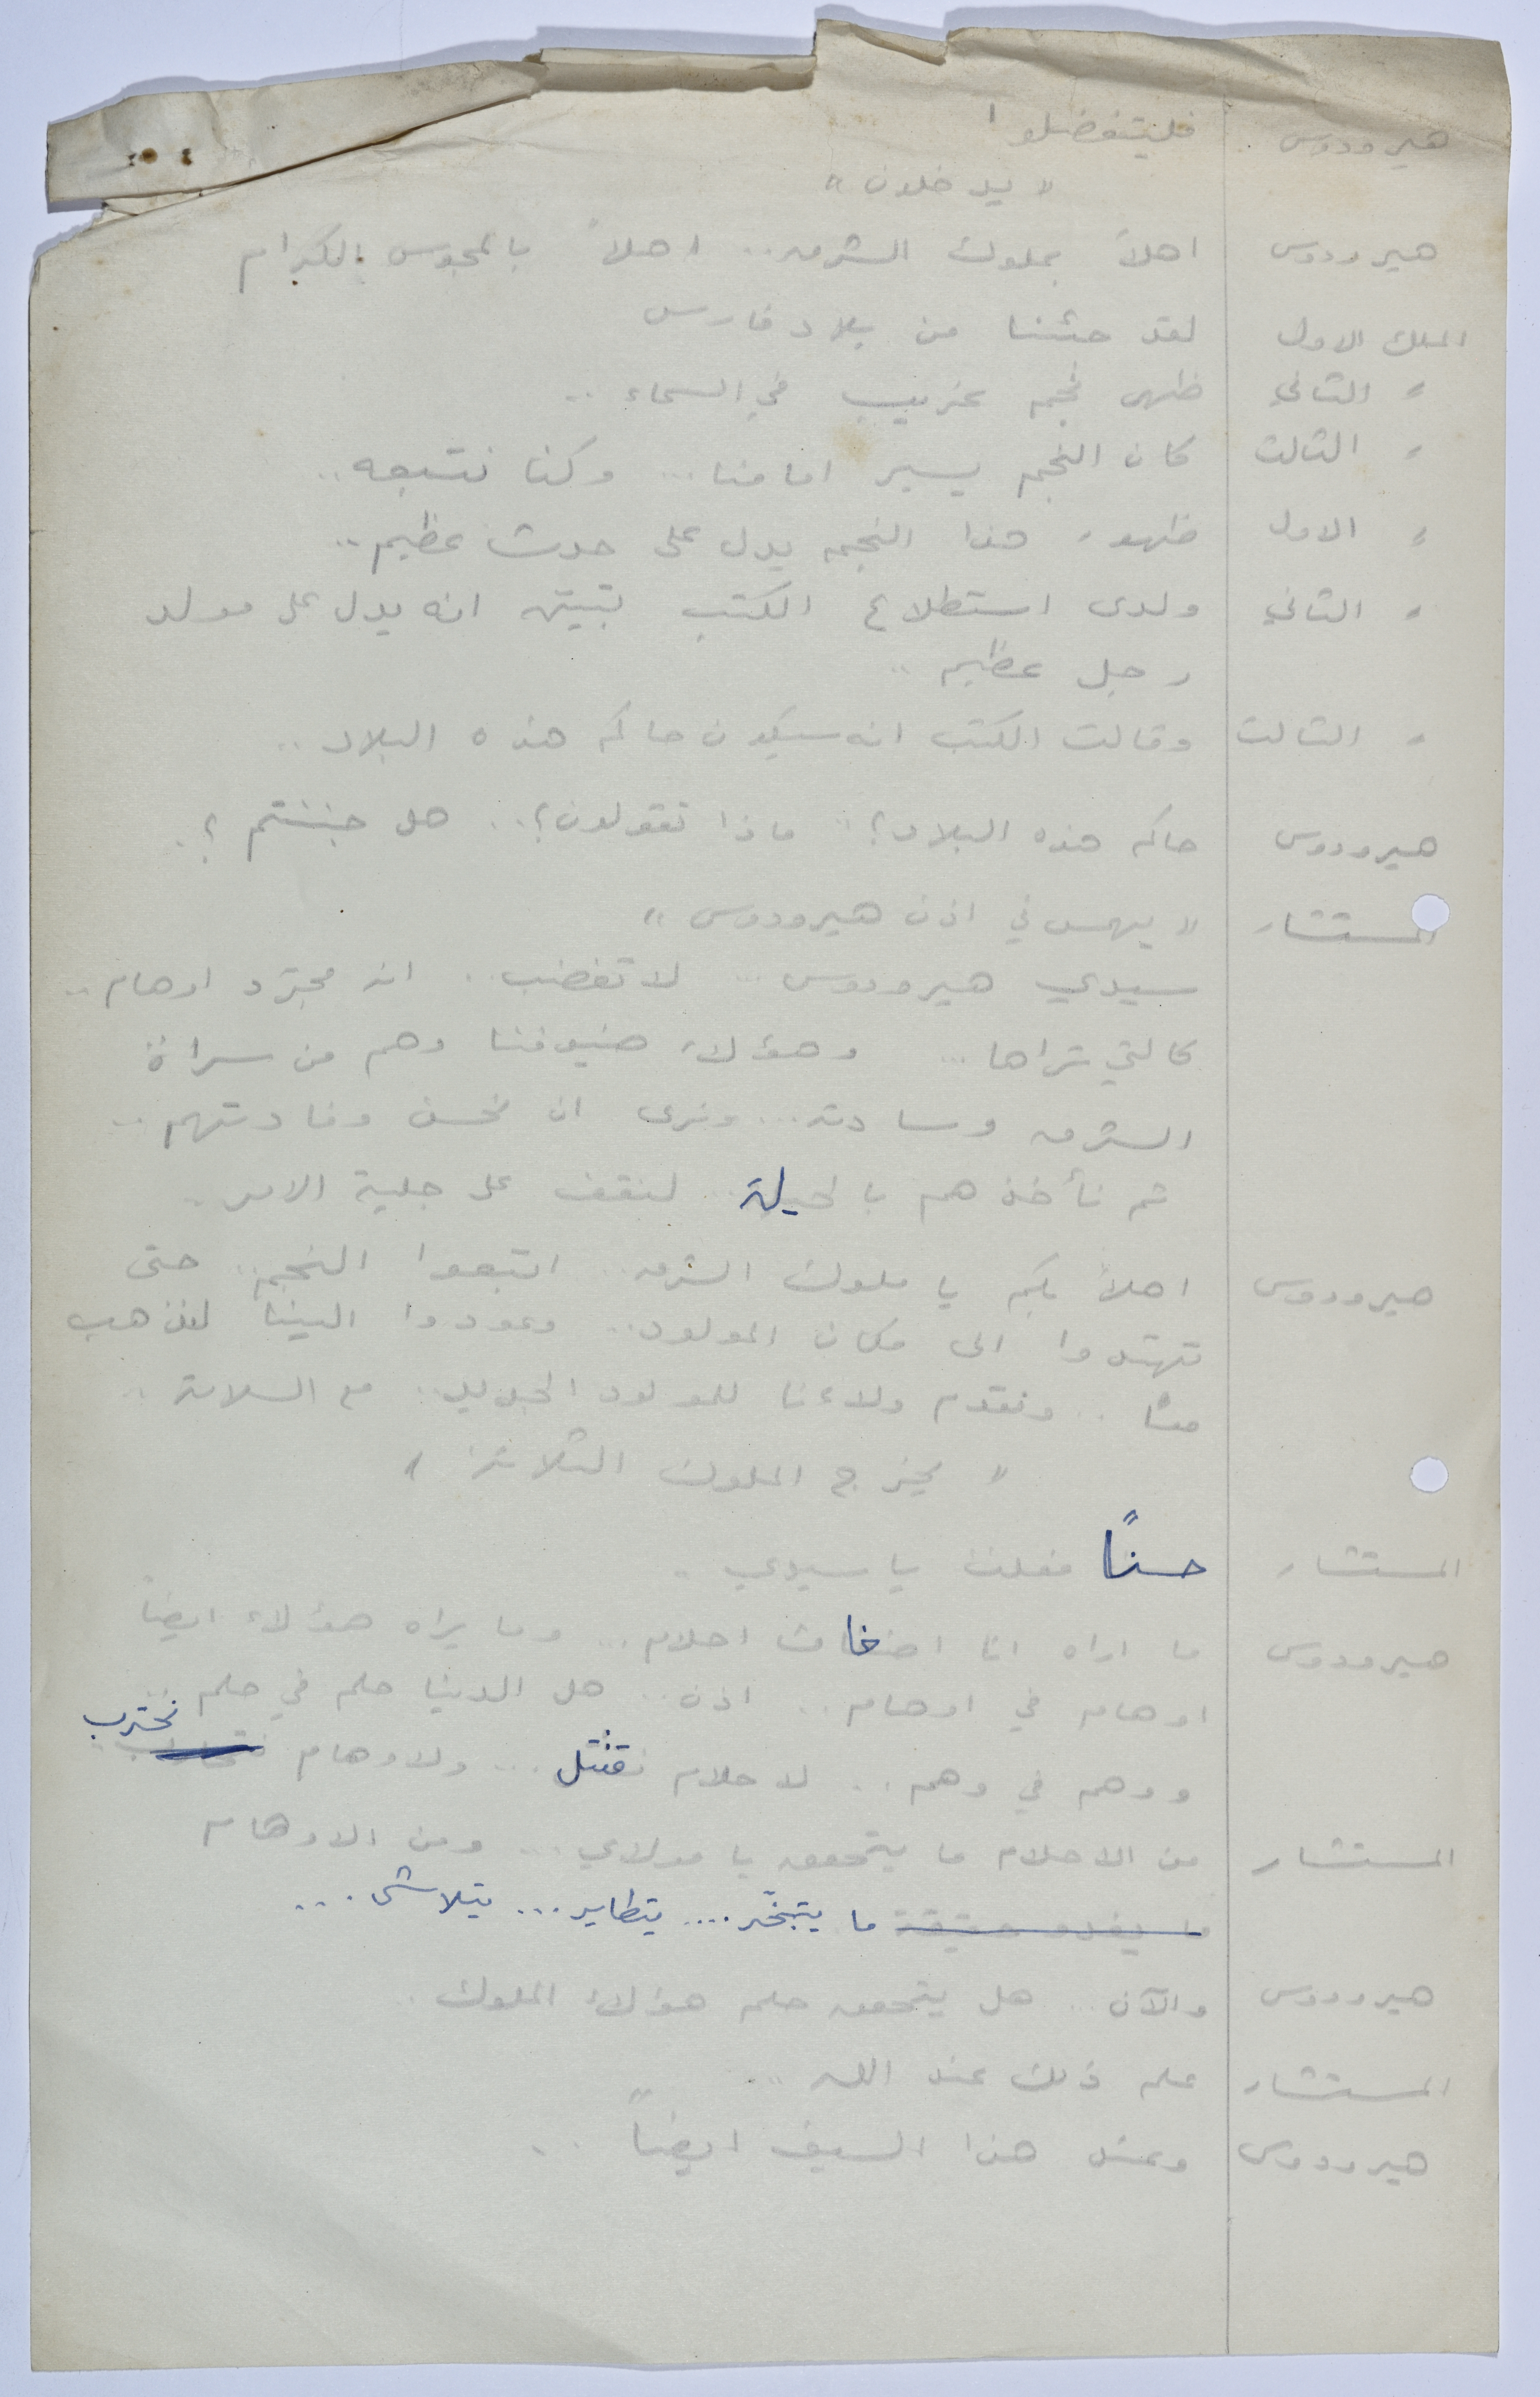 هيرودوس فليتفضلوا
" يدخلون "
هيرودوس اهلاً بملوك الشرق.. اهلاً بالمجوس الكرام
الملك الاول لقد جئنا من بلاد فارس
" الثاني ظهر نجم غريب في السماء ..
" الثالث كان النجم يسير امامنا ... وكنا نتبعه ..
" الاول ظهور هذا النجم يدل على حدث عظيم ..
" الثاني ولدى استطلاع الكتب تبين انه يدل على مولد
رجل عظيم ..
" الثالث وقالت الكتب انه سيكون حاكم هذه البلاد ..
هيرودوس حاكم هذه البلاد؟ .. ماذا تقولون؟ .. هل جننتم ؟.
المستشار " يهمس في اذن هيرودوس "
سيدي هيرودوس ... لا تغضب .. انه مجرّد اوهام ..
كالتي تراها ... وهؤلاء ضيوفنا وهم من سراة
الشرق وسادته ... ونرى ان نحسن وفادتهم ..
ثم نأخذهم بالحيلة .. لنقف على جلية الامر .
هيرودوس اهلاً بكم يا ملوك الشرق .. اتبعوا النجم .. حتى
تهتدوا الى مكان المولود .. وعودوا الينا لنذهب
معاً .. ونقدم ولاءنا للمولود الجديد .. مع السلامة ..
" يخرج الملوك الثلاثة "
المستشار حسناً فعلت يا سيدي ..
هيرودوس ما اراه انا اضغاث احلام ... وما يراه هؤلاء ايضاً
اوهام في اوهام .. اذن .. هل الدنيا حلم في حلم ..
ووهم في وهم .. لاحلام نقتتل ... ولاوهام نحترب
المستشار من الاحلام ما يتحقق يا مولاي ... ومن الاوهام
ما يغدو حقيقة ما يتبخّر .... يتطاير ... يتلاشى ...
هيرودوس والآن ... هل يتحقق حلم هؤلاء الملوك ..
المستشار علم ذلك عند الله ..
هيرودوس وعند هذا السيف ايضاً ..